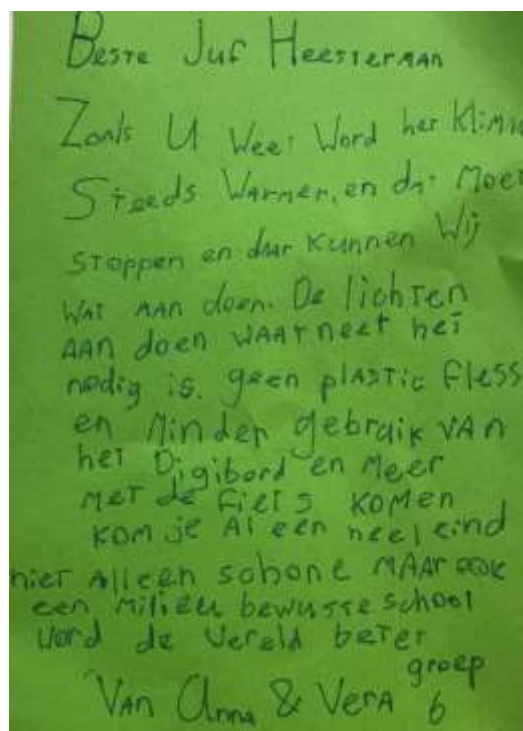 Beste Juf Heesterman
Zoals U Weet Word het Klimaa
Steeds Warmer, en dat Moet
stoppen en daar kunnen Wij
Wat aan doen. De lichten
aan doen waarneet het
nodig is. geen plastic fless
en Minder gebruik van
het Digibord en Meer
Met de fiets komen
kom je al een heel eind
niet alleen schone maar ook
een milieu bewusse school
word de wereld beter
Van Anna & Vera groep
6